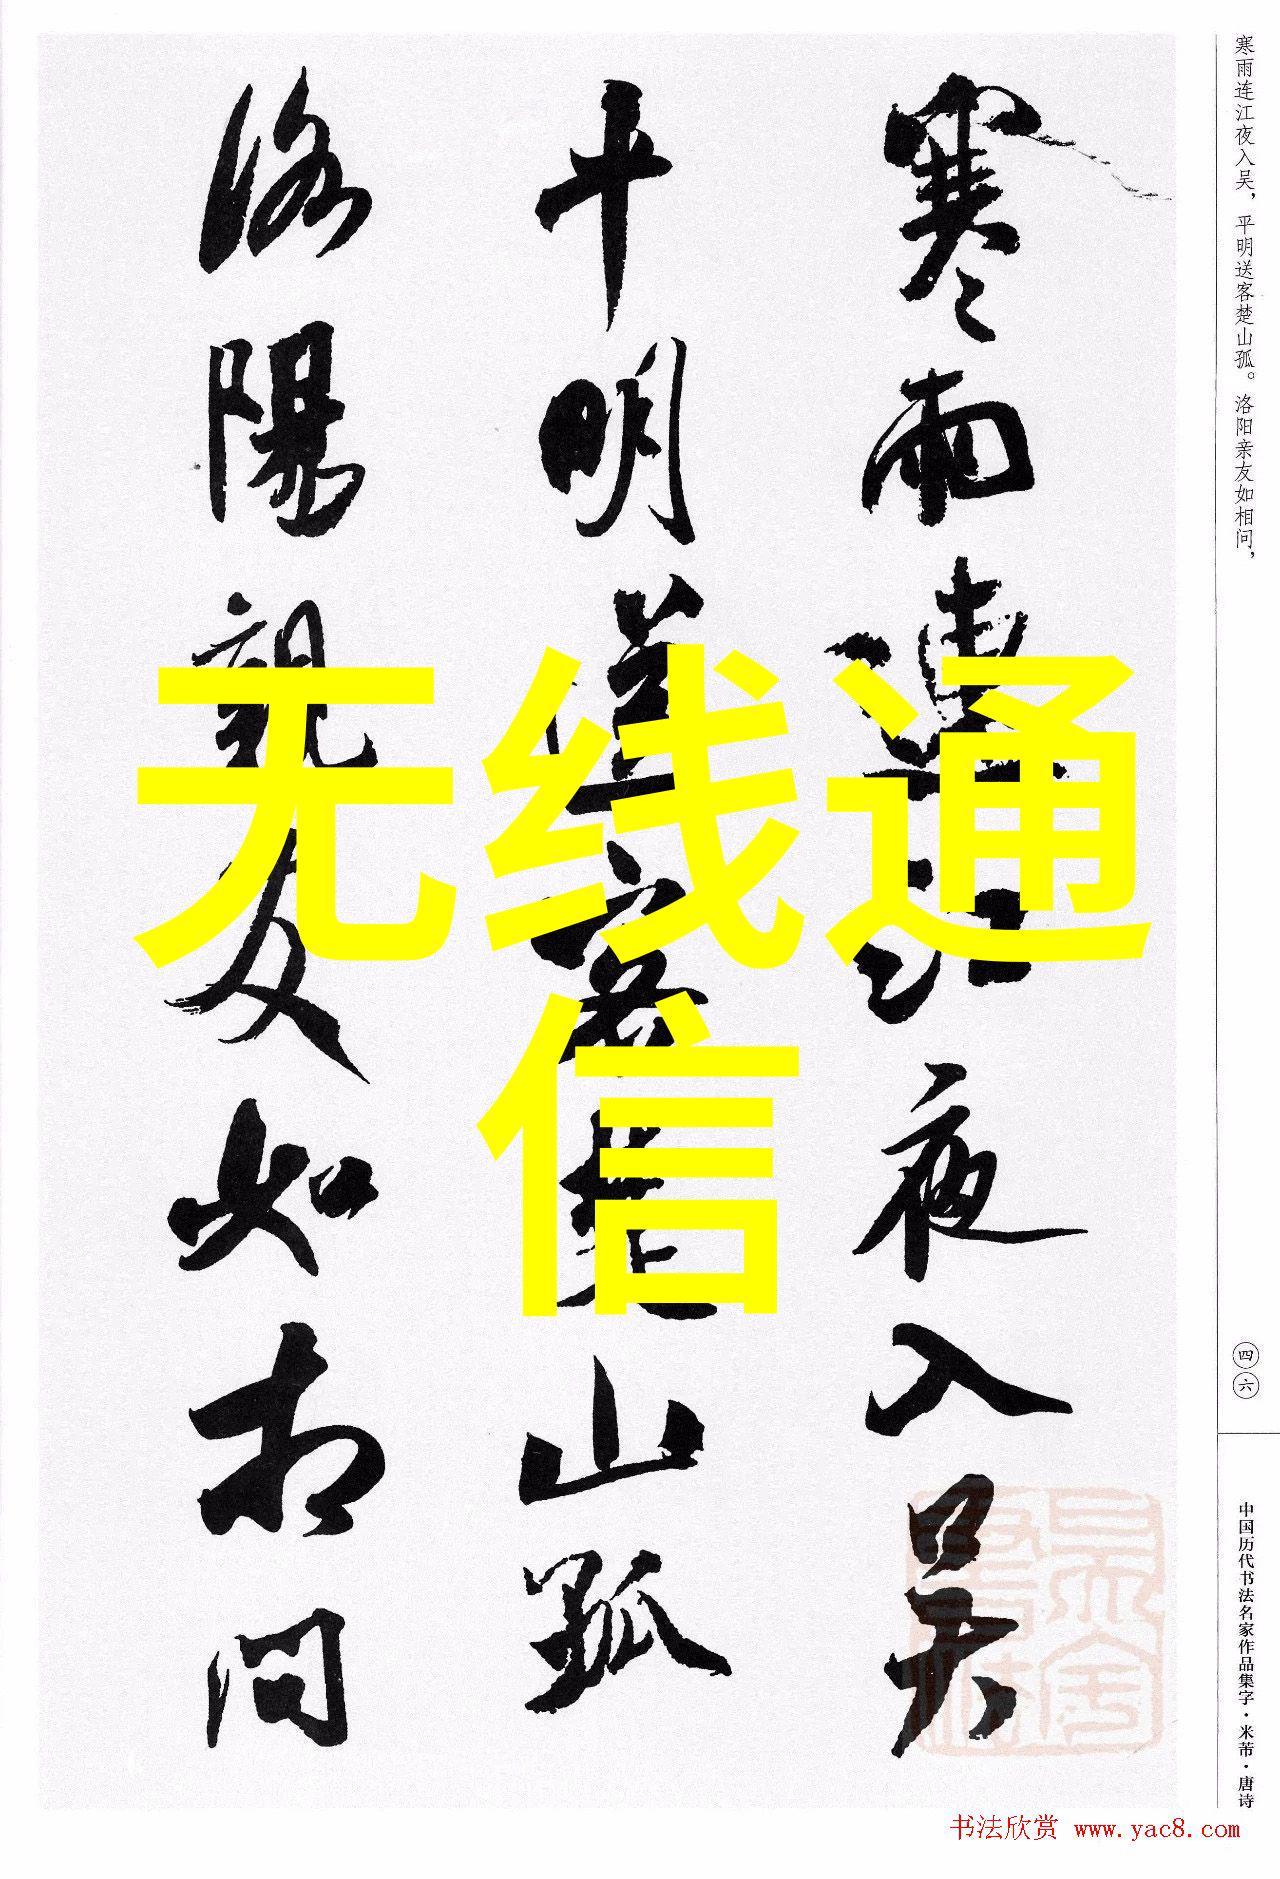 寒雨连江夜入吴，平明送客楚山孤。洛阳亲友如相问，
寒雨連江夜入吴
平明送客楚山孤
洛陽親友如相问
无线通
信
四六
中国历代书法名家作品集字·米芾·唐诗
书法欣赏 www.yac8.com